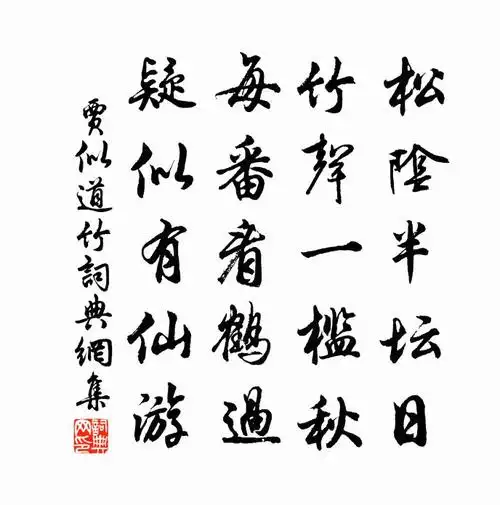 松陰半坛日
竹聲一檻秋
每番看鶴過
疑似有仙游
賈似道竹詞典網集
詞典网印